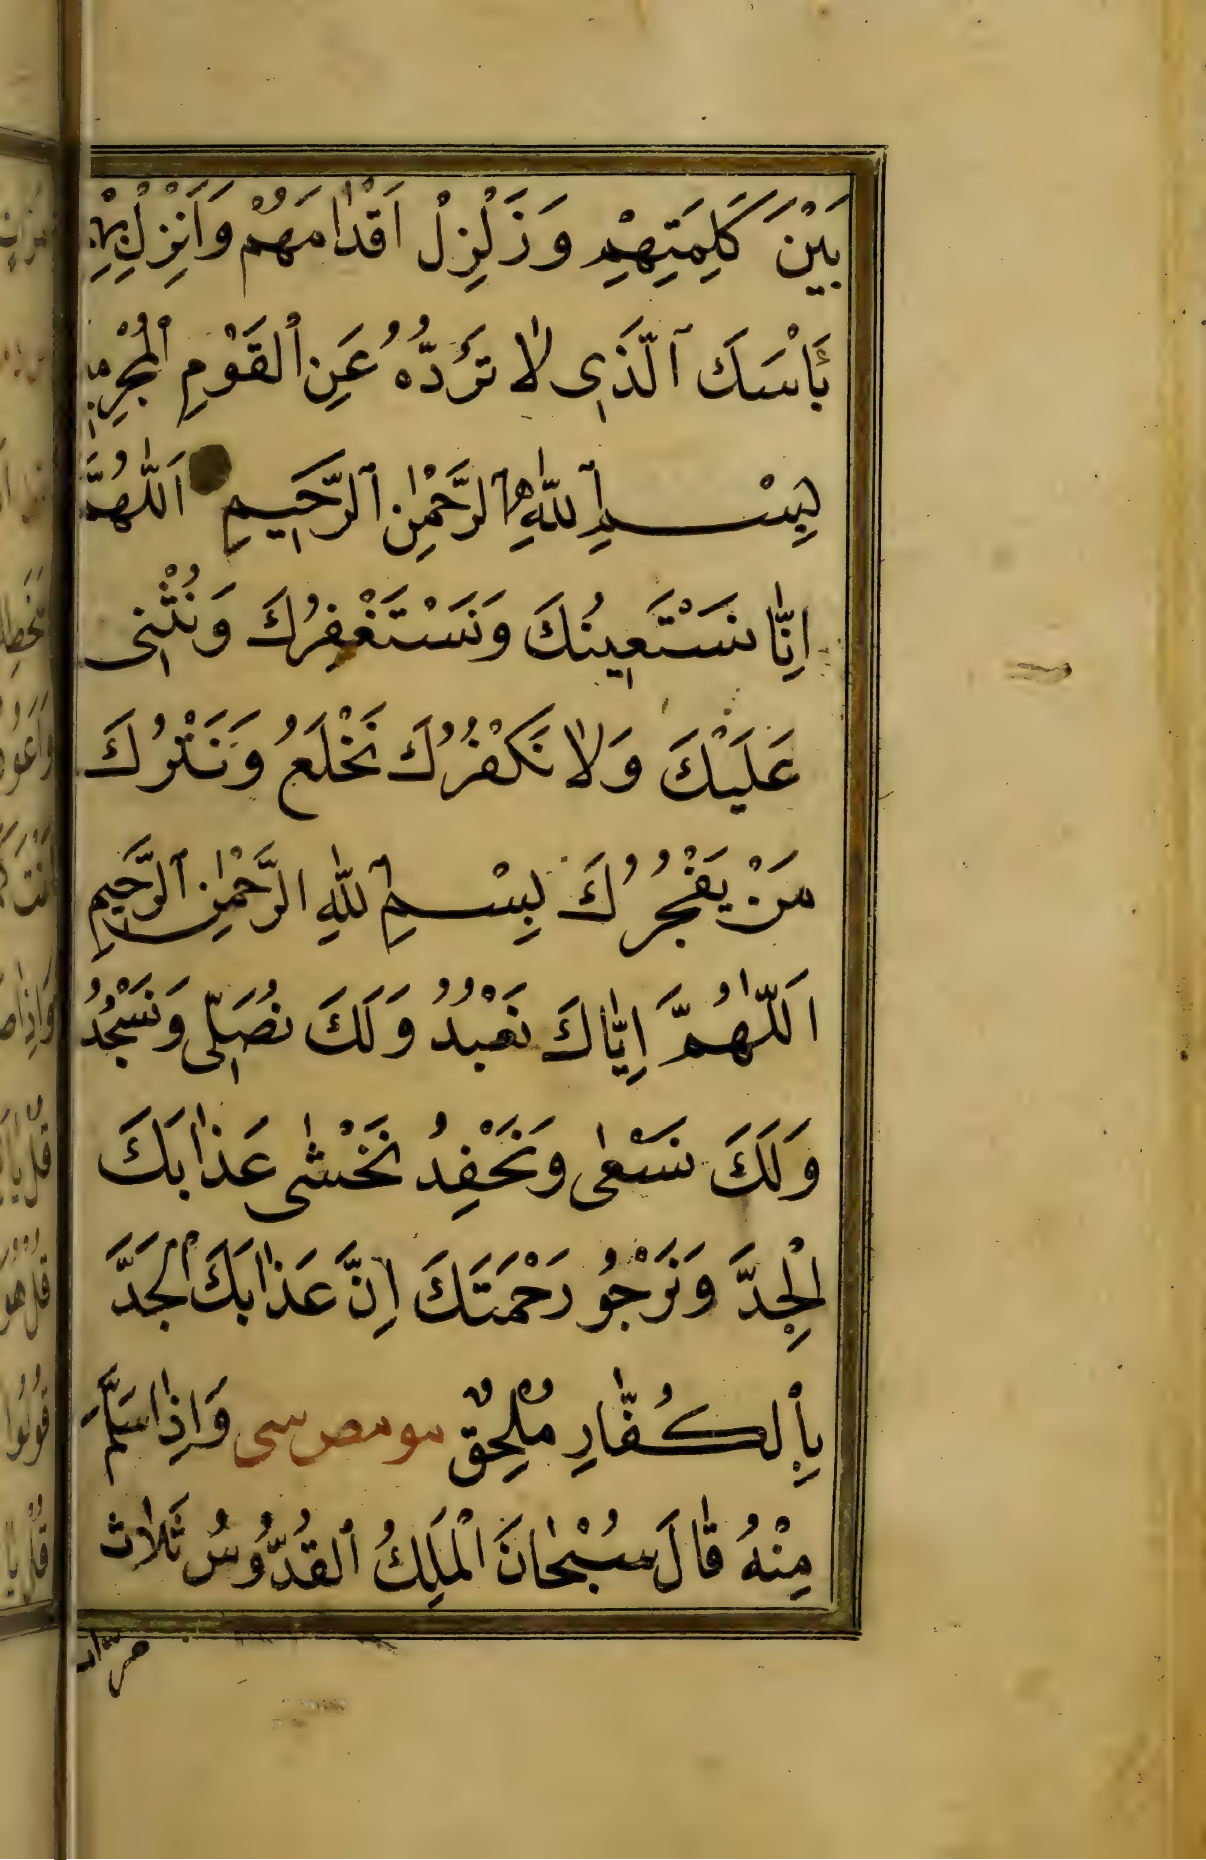 بَيْنَ كَلِمَتِهِمْ وَزَلْزِلْ اَقْدَامَهُمْ وَاَنْزِلْ بِهِمْ
بَأْسَكَ ٱلَّذِى لَا تَرُدُّهُ عَنِ ٱلقَوْمِ ٱلمُجْرِمِينَ
بِسْمِ ٱللّٰهِ ٱلرَّحْمٰنِ ٱلرَّحِيمِ اَللّٰهُمَّ
اِنَّا نَسْتَعِينُكَ وَنَسْتَغْفِرُكَ وَنُثْنِى
عَلَيْكَ وَلَا نَكْفُرُكَ نَخْلَعُ وَنَتْرُكَ
مَنْ يَفْجُرُكَ بِسْمِ ٱللّٰهِ الرَّحْمٰنِ ٱلرَّحِيمِ
اَللّٰهُمَّ اِيَّاكَ نَعْبُدُ وَلَكَ نُصَلِّى وَنَسْجُدُ
وَلَكَ نَسْعٰى وَنَحْفِدُ نَخْشٰى عَذَابَكَ
الْجِدَّ وَنَرْجُو رَحْمَتَكَ اِنَّ عَذَابَكَ الْجَدَّ
بِالْكُفَّارِ مُلْحِقٌ مو مص سى وَاِذَا سَلَّمَ
مِنْهُ قَالَ سُبْحَانَ الْمَلِكُ ٱلقُدُّوسُ ثَلَاثَ
مرات